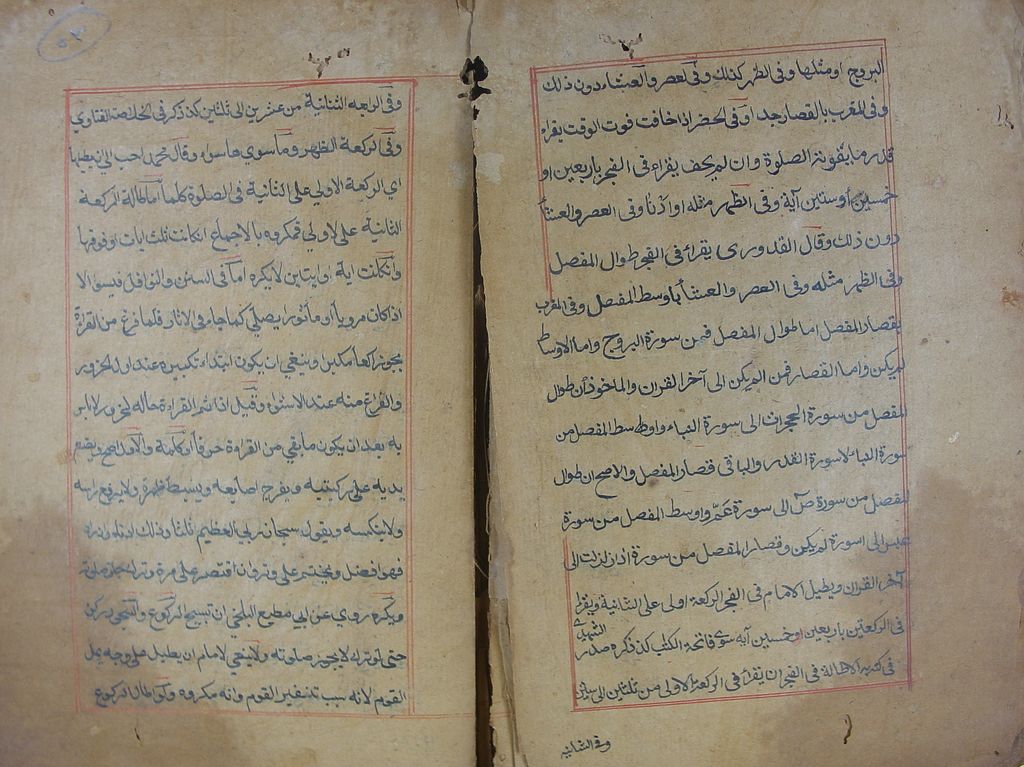 البروج او مثلها وفى الظهر كذلك وفى لعصر والعشاء دون ذلك
وفى المغرب بالقصار جدا او فى الحضر اذا خافت فوت الوقت يقراء
قدر ما يفوته الصلوة وان لم يخف يقراء فى الفجر باربعين او
خمسين أو ستين آية وفى الظهر مثله او ادنا وفى العصر والعشأ
دون ذلك وقال القدورى يقراء فى الفجر طوال المفصل
وفى الظهر مثله وفى العصر والعشأ باوسط المفصل وفى المغرب
بقصار المفصل اما طوال المفصل فمن سورة البروج واما الاوساط
لم يكن واما القصار فمن لم يكن الى آخر القرن والماخوذ أن طوال
المفصل من سورة الحجرات الى سورة النباء واوسط المفصل من
سورة النباء لا سورة القدر والباقى قصار المفصل والاصح ان طوال
المفصل من سورة ص الى سورة عم واوسط المفصل من سورة
عبس الى سورة لم يكن وقصار المفصل من سورة اذا زلزلت الى
آخر القران ويطيل الامام فى الفجر الركعة اولى على الثانية ويقرا
فى الركعتين باربعين او خمسين آيه سوى فاتحة الكتاب كذ ذكره صدر
الشهيد
الاطالة فى الفجر ان يقرأ فى الركعة الاولى من ثلثين الى ستين
وفى الثانيه
٥٢
وفى الرابعه الثنانية من عشرين الى ثلثين كذ ذكر فى الخلاصة الفتاوي
وفى الركعة الظهر وما سوي ها سواء وقال محمد احب الي ان يطيلها
اي الركعة الاولي على الثانية فى الصلوة كلها أما اطالة الركعة
الثانية على لاولي فمكروه بالاجماع انكانت ثلث ايات او فوقها
وانكانت اية او ايتاين لا يكره اما فى السنن والنوافل فيسوا الا
اذ اكان مرويا أو مأثورا يصلي كما جاء فى الاثار فلما فرغ من القراءة
يخر راكعا مكبرا وينغي ان يكون ابتداء تكبيره عند اول الخرور
والفراغ منه عند الاستواء وقيل اذا اتم القراءة حاله لخرور لا باس
به بعد ان يكون ما بقي من القراءة حرفا أو كلمة والاول اصح ويضع
يديه على ركبتيه ويفرج اصابعه ويبسط ظهره ولا يرفع راسه
ولا ينكسه ويقول سبحان ربي العظيم ثلثا وذلك ادناه وان زاد
فهو افضل ويختم على وتر فان اقتصر على مرة وترك جاز صلوته
ويكره وروي عن ابي مطيع البلخي ان تسبيح الركوع والسجود ركن
حتى لو تركه لا يجوز صلوته ولا ينغي لامام ان يطيل على وجه يمل
القوم لانه سبب تنفير القوم وانه مكروه ولو اطال الركوع